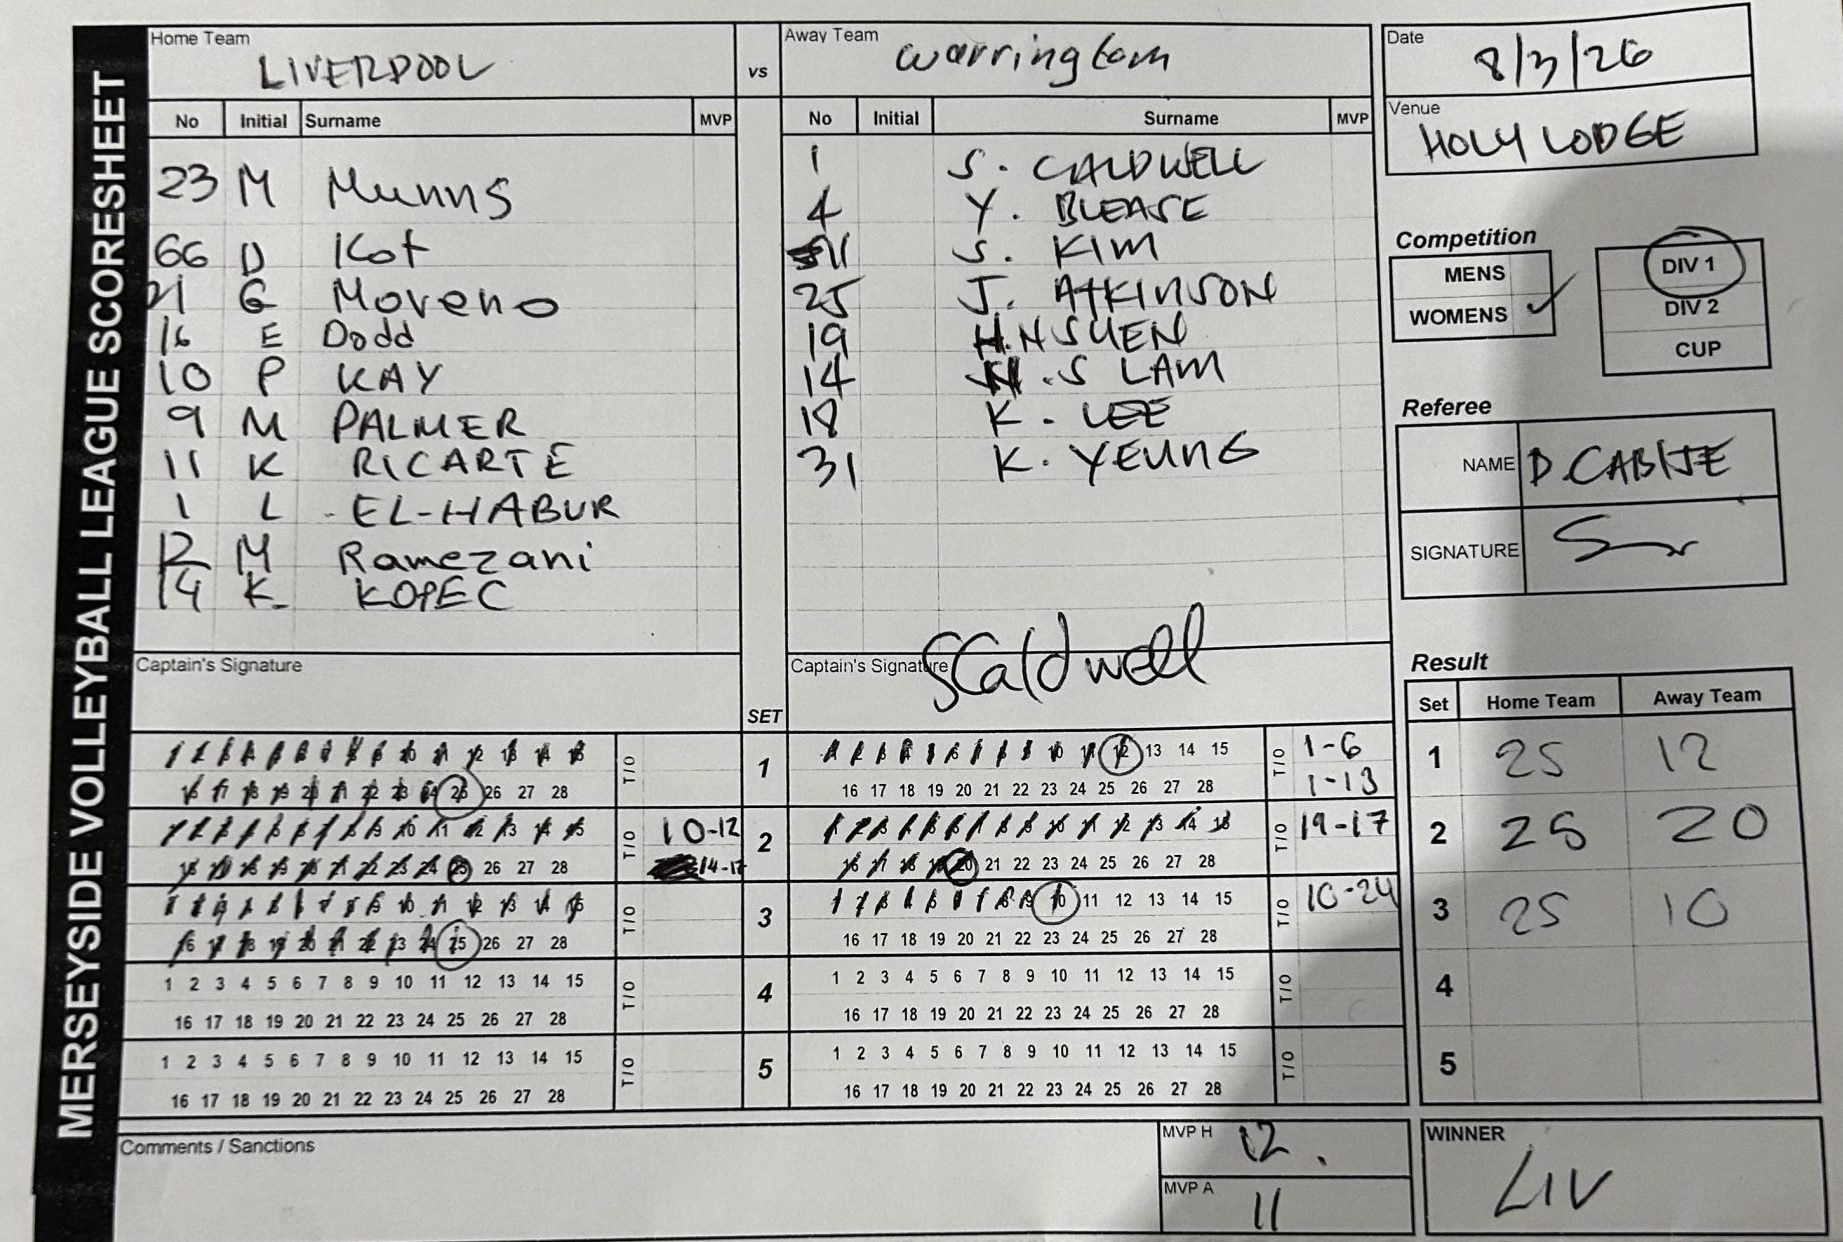 MERSEYSIDE VOLLEYBALL LEAGUE SCORESHEET
Home Team LIVERPOOL
vs
Away Team warringtom
Date 8/3/26
Venue HOLY LODGE
No Initial Surname MVP
23 M Munns
66 D Kot
21 G Moreno
16 E Dodd
10 P KAY
9 M PALMER
11 K RICARTE
1 L EL-HABUR
12 M Ramezani
14 K KOPEC
Captain's Signature
No Initial Surname MVP
1 S. CALDWELL
4 Y. BLEASE
11 S. KIM
25 J. ATKINSON
19 H.N SUEN
14 .S LAM
18 K. LEE
31 K. YEUNG
Captain's Signature SCaldwell
Competition
MENS
WOMENS
DIV 1
DIV 2
CUP
Referee
NAME
SIGNATURE
SET
1 2 3 4 5 6 7 8 9 10 11 12 13 14 15
16 17 18 19 20 21 22 23 24 25 26 27 28
T/O
1
1 2 3 4 5 6 7 8 9 10 11 12 13 14 15
16 17 18 19 20 21 22 23 24 25 26 27 28
T/O 1-6
1-13
1 2 3 4 5 6 7 8 9 10 11 12 13 14 15
16 17 18 19 20 21 22 23 24 25 26 27 28
T/O 10-12
14-17
2
1 2 3 4 5 6 7 8 9 10 11 12 13 14 15
16 17 18 19 20 21 22 23 24 25 26 27 28
T/O 19-17
1 2 3 4 5 6 7 8 9 10 11 12 13 14 15
16 17 18 19 20 21 22 23 24 25 26 27 28
T/O
3
1 2 3 4 5 6 7 8 9 10 11 12 13 14 15
16 17 18 19 20 21 22 23 24 25 26 27 28
T/O 10-24
1 2 3 4 5 6 7 8 9 10 11 12 13 14 15
16 17 18 19 20 21 22 23 24 25 26 27 28
T/O
4
1 2 3 4 5 6 7 8 9 10 11 12 13 14 15
16 17 18 19 20 21 22 23 24 25 26 27 28
T/O
1 2 3 4 5 6 7 8 9 10 11 12 13 14 15
16 17 18 19 20 21 22 23 24 25 26 27 28
T/O
5
1 2 3 4 5 6 7 8 9 10 11 12 13 14 15
16 17 18 19 20 21 22 23 24 25 26 27 28
T/O
Result
Set Home Team Away Team
1 25 12
2 25 20
3 25 10
4
5
Comments / Sanctions
MVP H 12.
MVP A 11
WINNER LIV